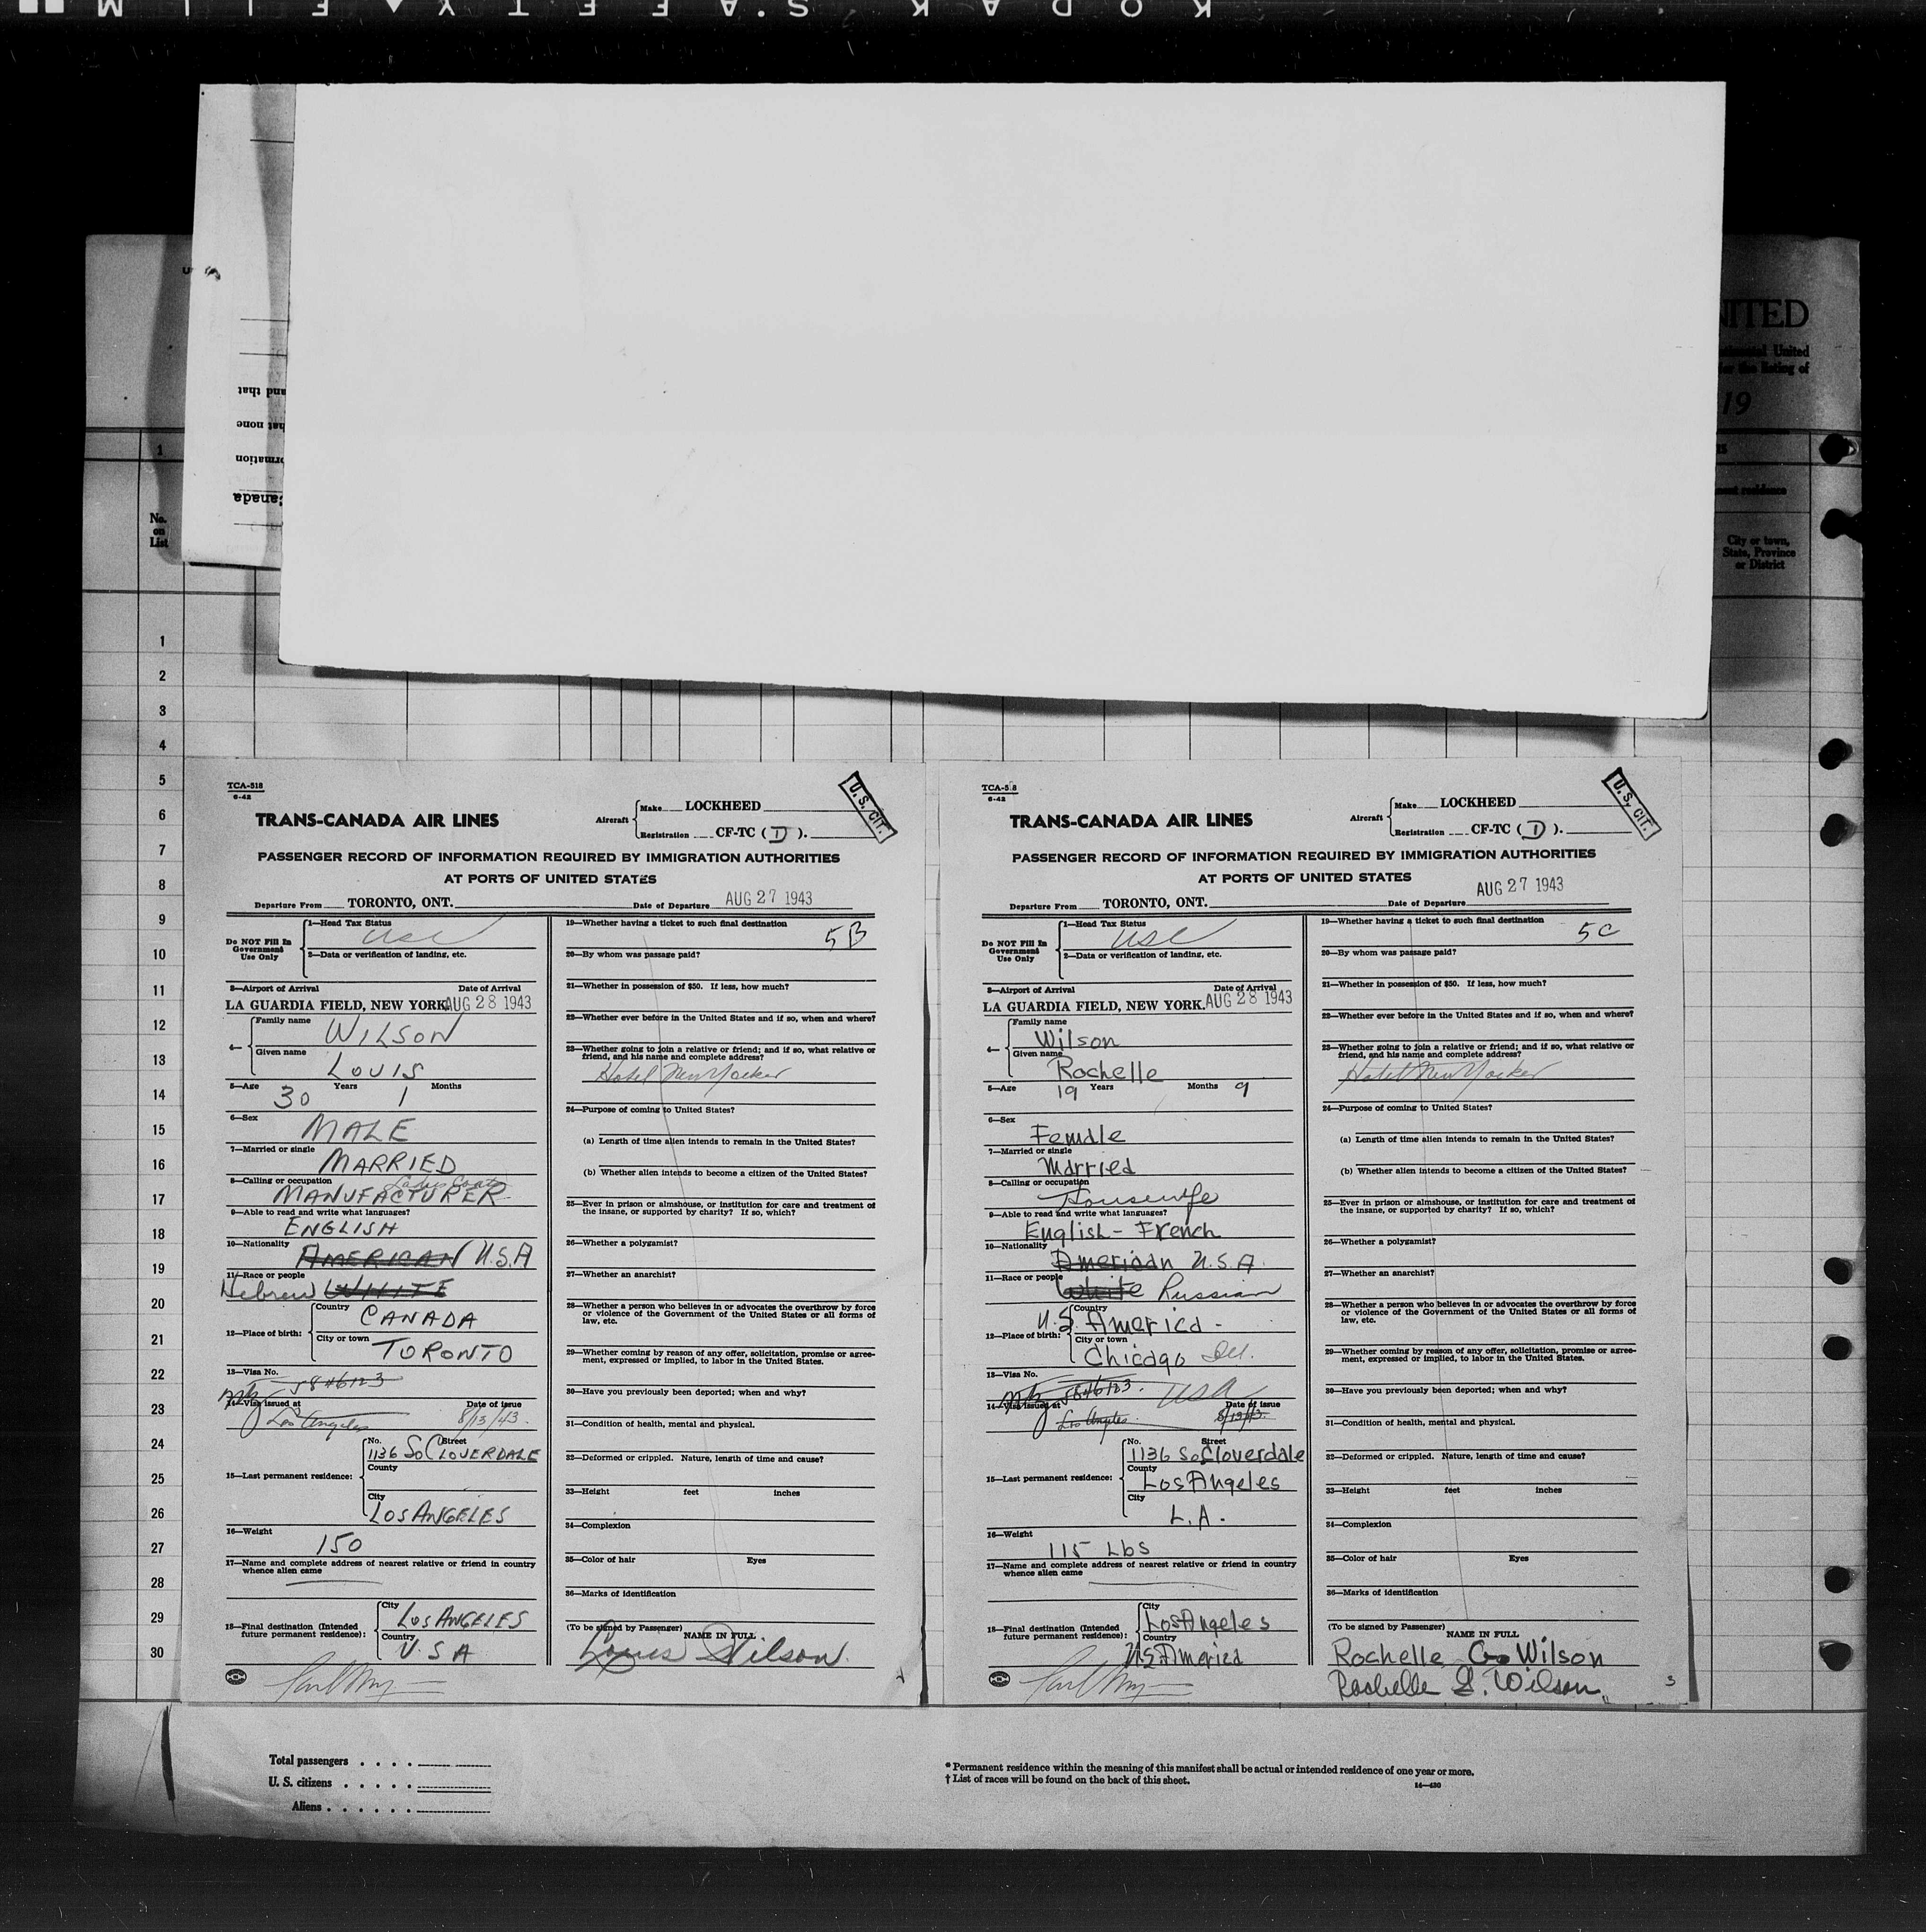 KODAK SAFETY FILM
NITED
United
for the listing of
19
and that
none
Canada
1
No.
on
List
City or town,
State, Province
or District
1
2
3
4
5
6
7
8
9
10
11
12
13
14
15
16
17
18
19
20
21
22
23
24
25
26
27
28
29
30
TCA-518
6-42
TRANS-CANADA AIR LINES
Aircraft
Make LOCKHEED
Registration CF-TC ( D ).
U.S. CIT.
PASSENGER RECORD OF INFORMATION REQUIRED BY IMMIGRATION AUTHORITIES
AT PORTS OF UNITED STATES
Departure From TORONTO, ONT. Date of Departure AUG 27 1943
Do NOT Fill In
Government
Use Only
1—Head Tax Status
USC
2—Data or verification of landing, etc.
3—Airport of Arrival Date of Arrival
LA GUARDIA FIELD, NEW YORK. AUG 28 1943
4—
Family name
WILSON
Given name
LOUIS
5—Age Years Months
30 1
6—Sex
MALE
7—Married or single
MARRIED
8—Calling or occupation
Ladies Coats
MANUFACTURER
9—Able to read and write what languages?
ENGLISH
10—Nationality
AMERICAN U.S.A
11—Race or people
Hebrew WHITE
12—Place of birth:
Country
CANADA
City or town
TORONTO
13—Visa No.
5846123
14—Visa issued at Date of issue
Los Angeles 8/13/43.
15—Last permanent residence:
No. Street
1136 So CLOVERDALE
County
City
LOS ANGELES
16—Weight
150
17—Name and complete address of nearest relative or friend in country
whence alien came
18—Final destination (Intended
future permanent residence):
City
LOS ANGELES
Country
U.S A
19—Whether having a ticket to such final destination
5B
20—By whom was passage paid?
21—Whether in possession of $50. If less, how much?
22—Whether ever before in the United States and if so, when and where?
23—Whether going to join a relative or friend; and if so, what relative or
friend, and his name and complete address?
Hotel New Yorker
24—Purpose of coming to United States?
(a) Length of time alien intends to remain in the United States?
(b) Whether alien intends to become a citizen of the United States?
25—Ever in prison or almshouse, or institution for care and treatment of
the insane, or supported by charity? If so, which?
26—Whether a polygamist?
27—Whether an anarchist?
28—Whether a person who believes in or advocates the overthrow by force
or violence of the Government of the United States or all forms of
law, etc.
29—Whether coming by reason of any offer, solicitation, promise or agree-
ment, expressed or implied, to labor in the United States.
30—Have you previously been deported; when and why?
31—Condition of health, mental and physical.
32—Deformed or crippled. Nature, length of time and cause?
33—Height feet inches
34—Complexion
35—Color of hair Eyes
36—Marks of identification
(To be signed by Passenger) NAME IN FULL
Louis Wilson
TCA-518
6-42
TRANS-CANADA AIR LINES
Aircraft
Make LOCKHEED
Registration CF-TC ( D ).
U.S. CIT.
PASSENGER RECORD OF INFORMATION REQUIRED BY IMMIGRATION AUTHORITIES
AT PORTS OF UNITED STATES
Departure From TORONTO, ONT. Date of Departure AUG 27 1943
Do NOT Fill In
Government
Use Only
1—Head Tax Status
USC
2—Data or verification of landing, etc.
3—Airport of Arrival Date of Arrival
LA GUARDIA FIELD, NEW YORK. AUG 28 1943
4—
Family name
Wilson
Given name
Rochelle
5—Age Years Months
19 9
6—Sex
Female
7—Married or single
Married
8—Calling or occupation
Housewife
9—Able to read and write what languages?
English - French
10—Nationality
American U.S.A.
11—Race or people
White Russian
12—Place of birth:
Country
U.S. America -
City or town
Chicago Ill.
13—Visa No.
5846123. USA
14—Visa issued at Date of issue
Los Angeles 8/13/43.
15—Last permanent residence:
No. Street
1136 So Cloverdale
County
Los Angeles
City
L.A.
16—Weight
115 Lbs
17—Name and complete address of nearest relative or friend in country
whence alien came
18—Final destination (Intended
future permanent residence):
City
Los Angeles
Country
U.S America
19—Whether having a ticket to such final destination
5C
20—By whom was passage paid?
21—Whether in possession of $50. If less, how much?
22—Whether ever before in the United States and if so, when and where?
23—Whether going to join a relative or friend; and if so, what relative or
friend, and his name and complete address?
Hotel New Yorker
24—Purpose of coming to United States?
(a) Length of time alien intends to remain in the United States?
(b) Whether alien intends to become a citizen of the United States?
25—Ever in prison or almshouse, or institution for care and treatment of
the insane, or supported by charity? If so, which?
26—Whether a polygamist?
27—Whether an anarchist?
28—Whether a person who believes in or advocates the overthrow by force
or violence of the Government of the United States or all forms of
law, etc.
29—Whether coming by reason of any offer, solicitation, promise or agree-
ment, expressed or implied, to labor in the United States.
30—Have you previously been deported; when and why?
31—Condition of health, mental and physical.
32—Deformed or crippled. Nature, length of time and cause?
33—Height feet inches
34—Complexion
35—Color of hair Eyes
36—Marks of identification
(To be signed by Passenger) NAME IN FULL
Rochelle G. Wilson
Rochelle G. Wilson
3
Total passengers
U. S. citizens
Aliens
* Permanent residence within the meaning of this manifest shall be actual or intended residence of one year or more.
† List of races will be found on the back of this sheet.